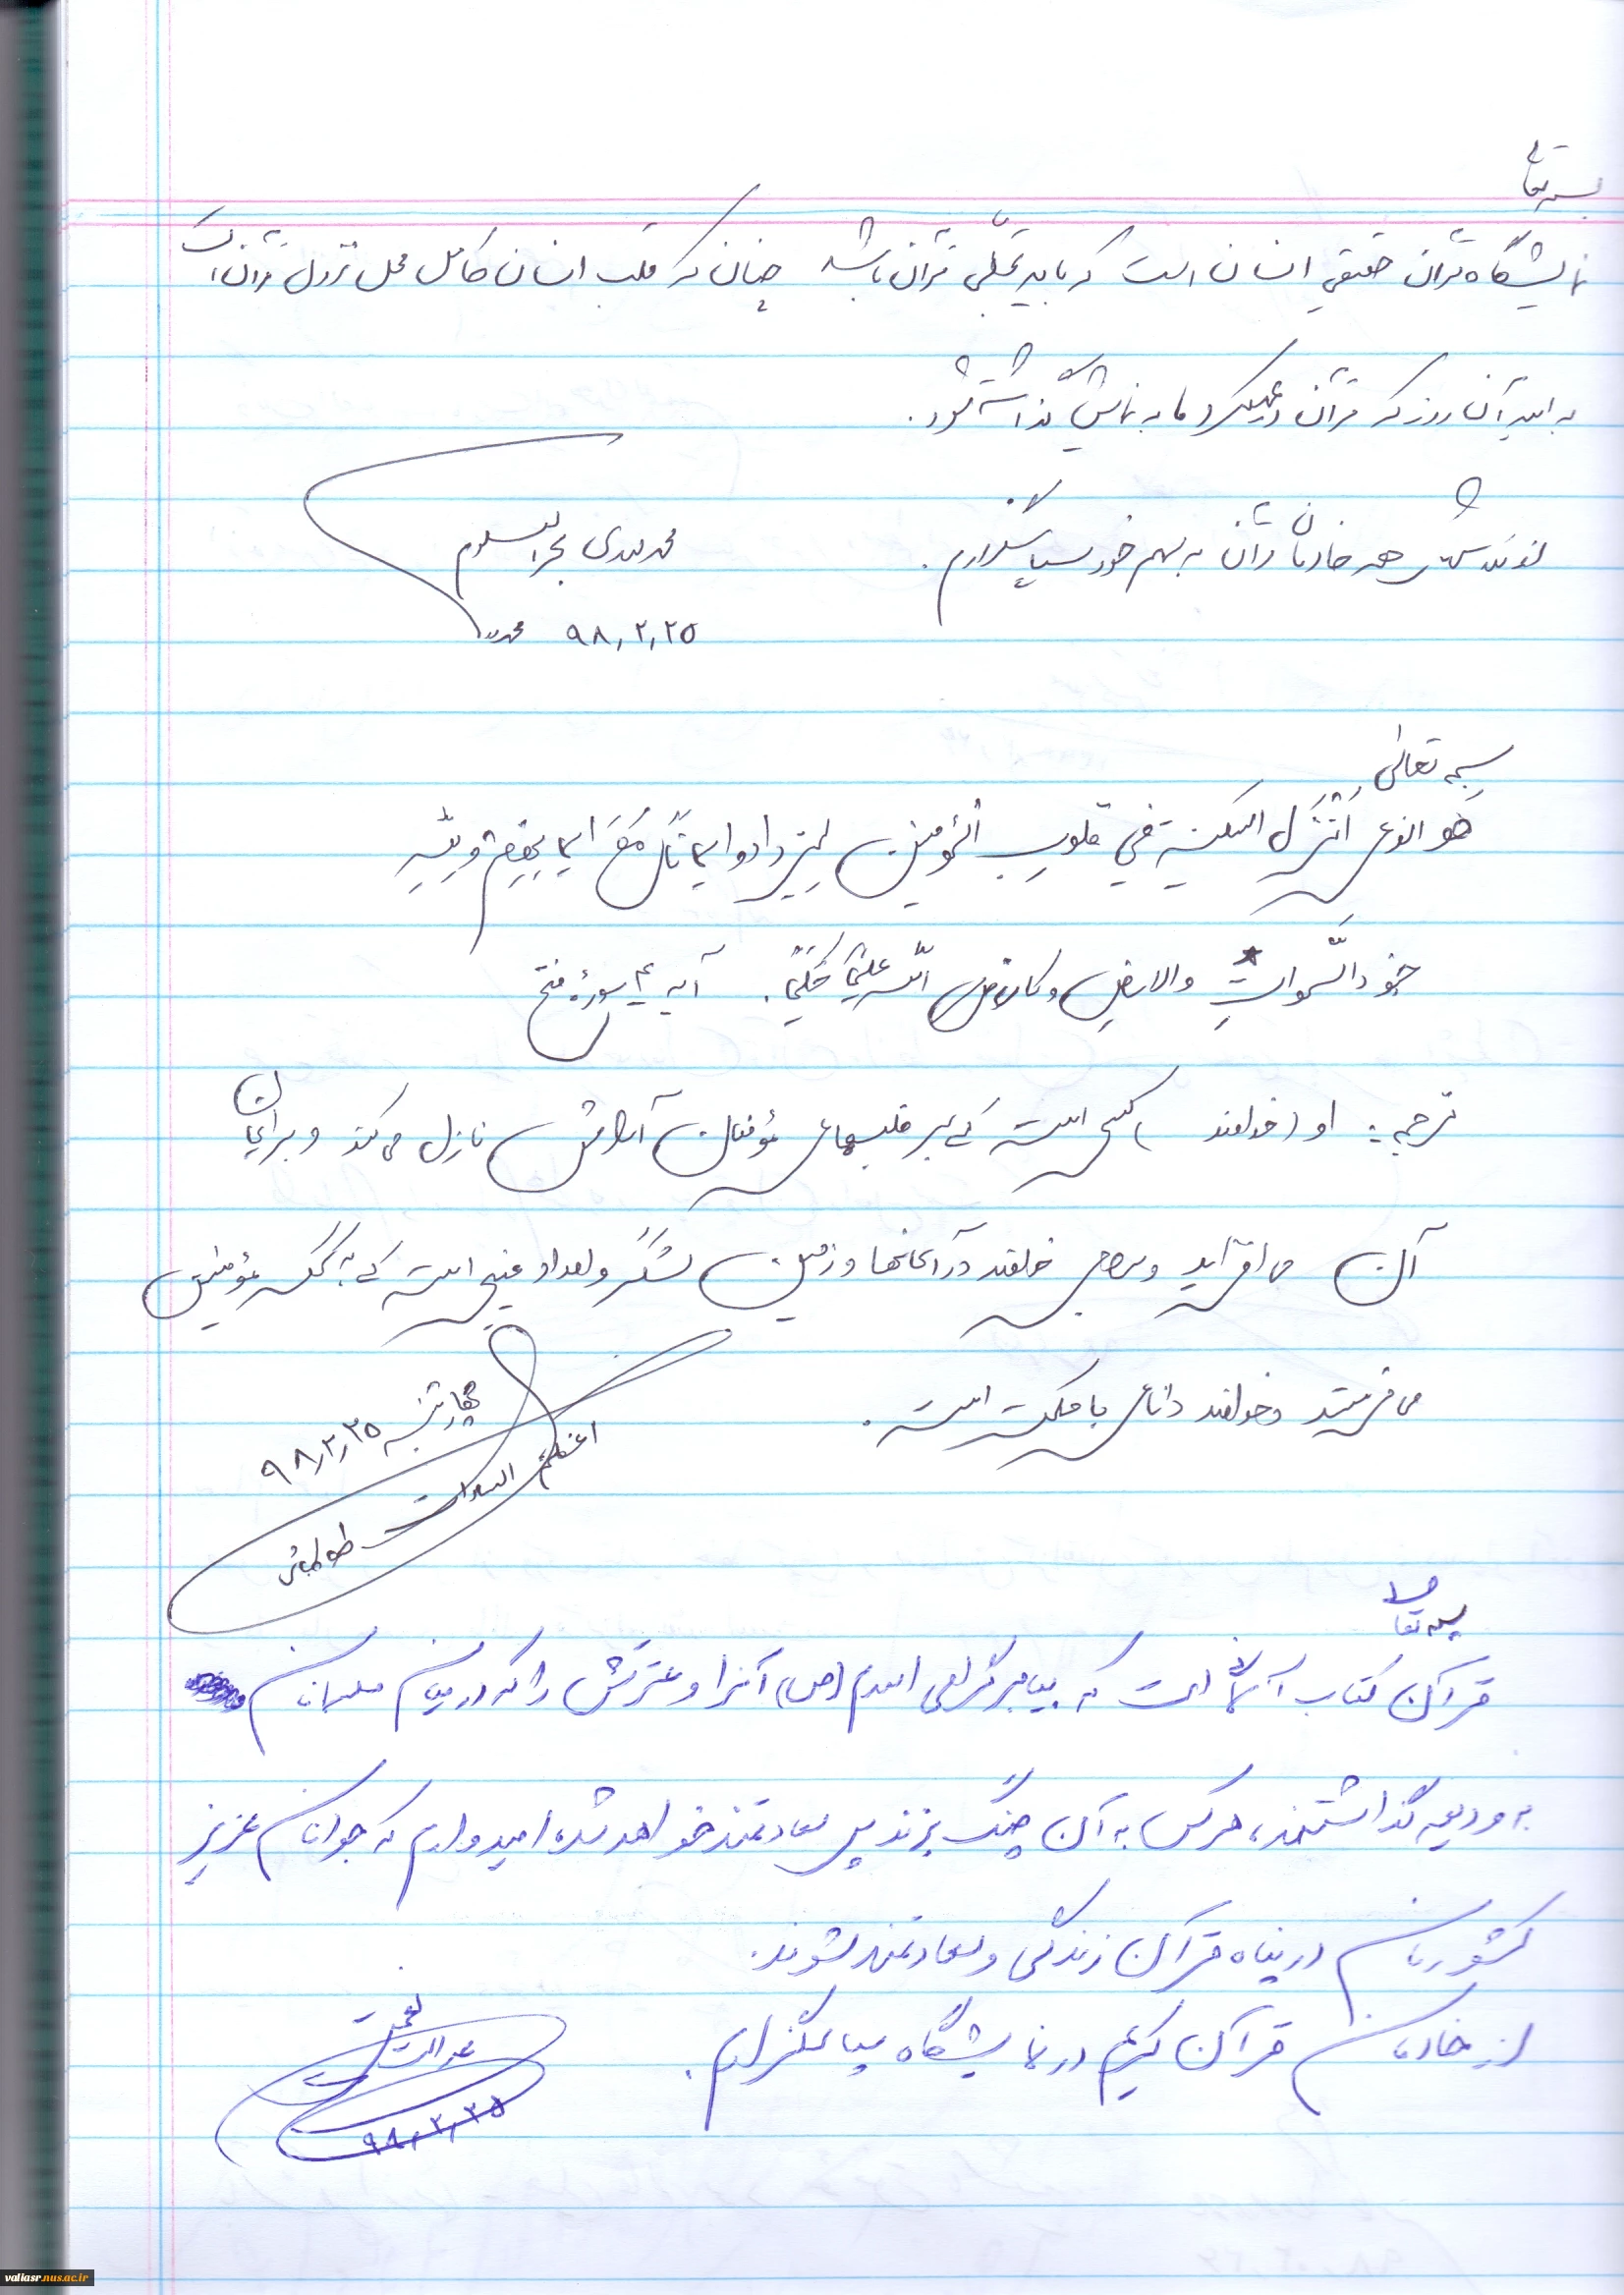 بسمه تعالی
نمایشگاه قرآن حقیقی انسان است که باید تجلی قرآن باشد چنان که قلب انسان کامل محل نزول قرآن است
به امید آن روز که قرآن در عملکرد ما به نمایش گذاشته شود.
از همه خادمان قرآن به سهم خود سپاسگزارم.
محمدمهدی بحرالعلوم
۹۸/۲/۲۵
بسمه تعالی
هُوَ الذی اَنْزَلَ السکینة فی قلوبِ المُؤمنین لیزدادو ایماناً مَعَ ایمانِهِم و لله
جنود السَّمواتِ والارض و کان الله علیماً حکیماً. آیه ۴ سورهٔ فتح
ترجمه: او (خداوند) کسی است که بر قلبهای مؤمنان آرامش نازل می کند و بر ایمان
آن می افزاید و خداوند در آسمانها و زمین لشگر و امداد غیبی است که به کمک مؤمنین
می فرستد و خداوند دانای با حکمت است.
چهارشنبه ۹۸/۲/۲۵
اعظم السادات طباطبائی
بسمه تعالی
قرآن کتاب آسمانی است که پیامبر گرامی اسلام (ص) آنرا و عترتش را که در میان مسلمانان
به ودیعه گذاشتند، هرکس به آن چنگ بزند پس سعادتمند خواهد شد، امیدوارم که جوانان عزیز
کشورمان در پناه قرآن زندگی و سعادتمند شوند.
از خادمان قرآن کریم در نمایشگاه سپاسگزارم.
عدالت
۹۸/۲/۲۵
valiasr.nus.ac.ir